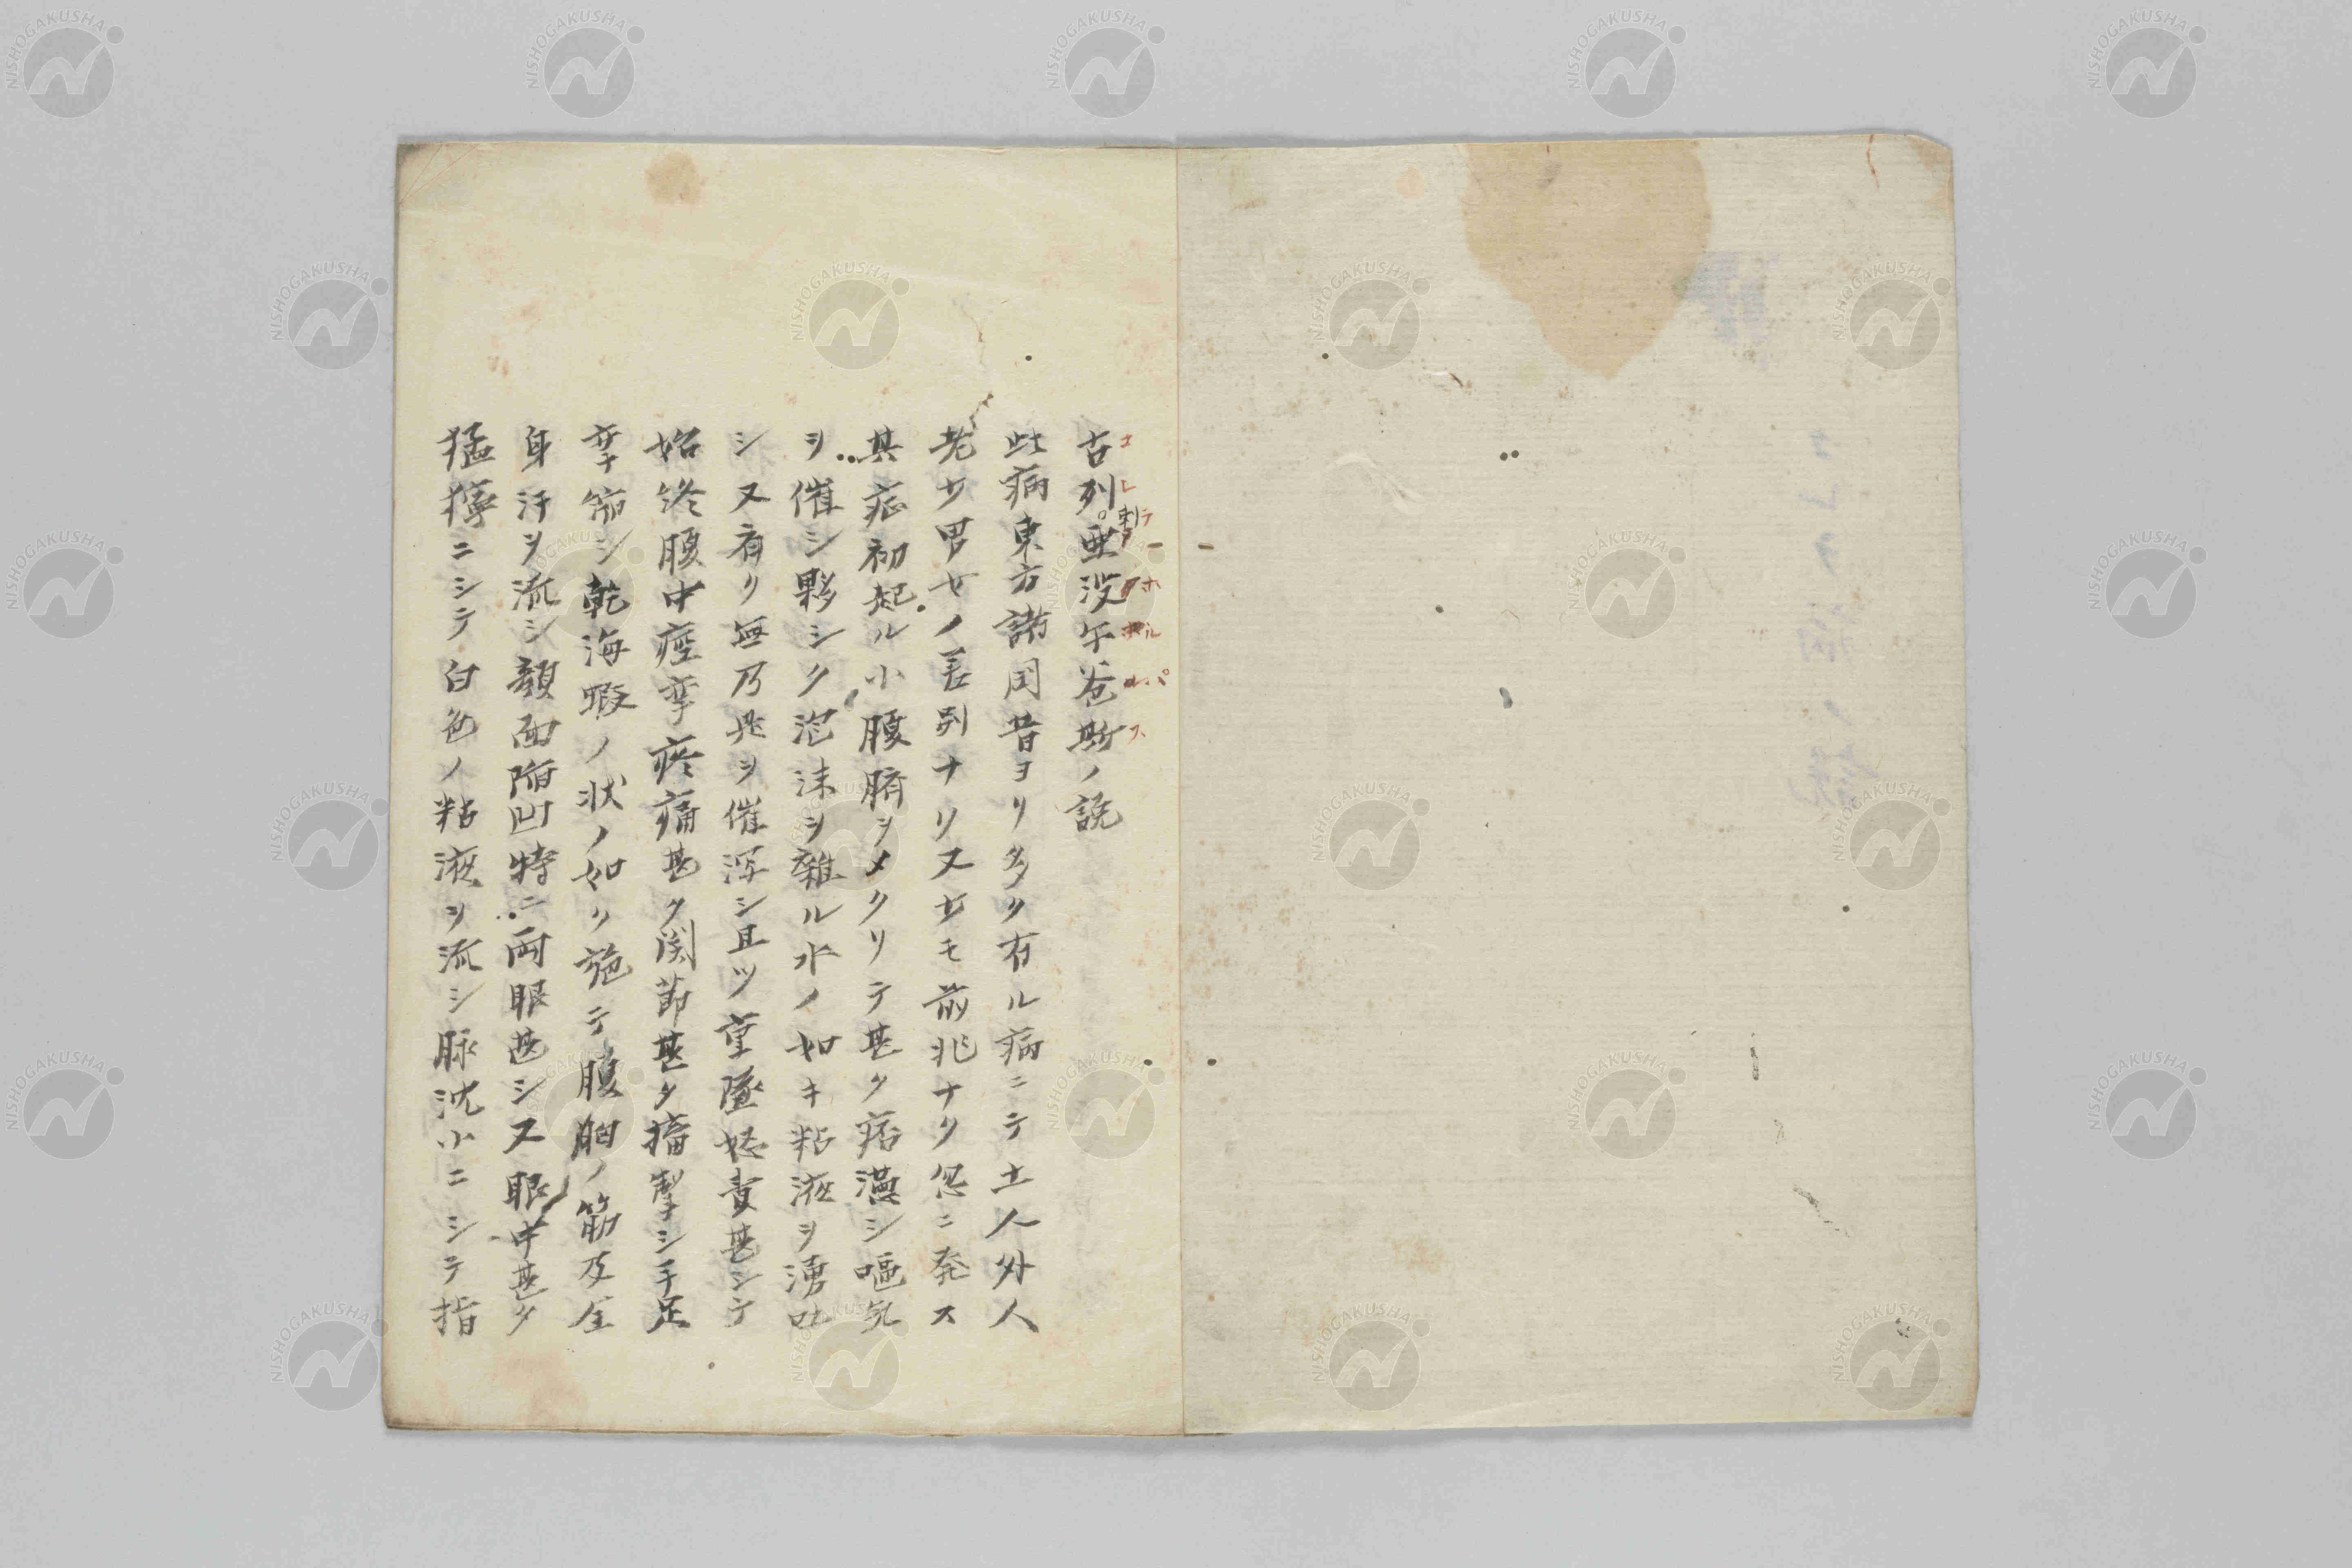 古列亜没午爸斯ノ説
刺
コレラアホルパス
此病東方諸国昔ヨリ多ク有ル病ニテ土人外人
老少男女ノ差別ナリ又少モ前兆ナク忽ニ発ス
其症初起ル小腹臍ヲメクリテ甚タ痞満シ嘔気
ヲ催シ夥シク泡沫ヲ雑ル水ノ如キ粘液ヲ湧吐
シ又有リ無乃兆ヲ催瀉シ且ツ重墜怒責甚シテ
始終腹中痙攣疼痛甚ク関節甚タ搐掣シ手足
攣縮シ乾海蝦ノ状ノ如ク施テ腹胸ノ筋及全
身汗ヲ流シ顔面陥凹特ニ両眼甚シ又眼中甚タ
猛獰ニシテ白色ノ粘液ヲ流シ脉沈小ニシテ指
NISHOGAKUSHA